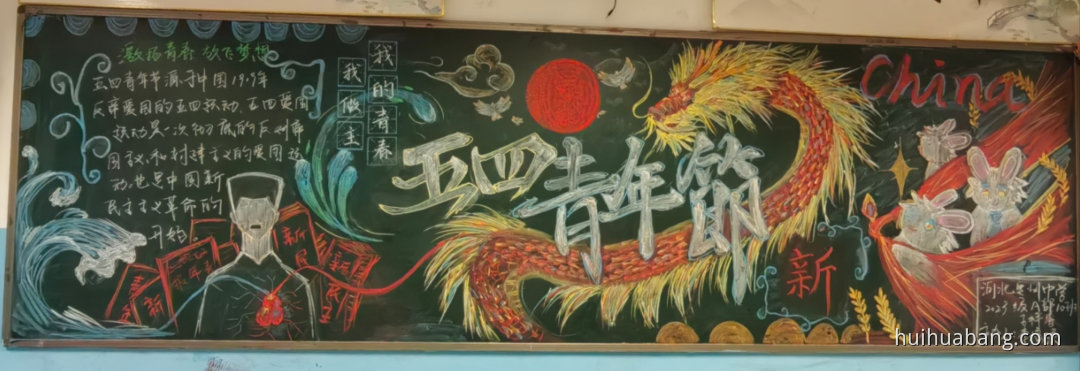 激扬青春 放飞梦想
五四青年节源于中国1919年
反帝爱国的五四运动,五四爱国
运动是一次彻底的反对帝
国主义和封建主义的爱国运
动,也是中国新
民主主义革命的
开始。
我的青春
我做主
五四青年節
China
新
新
新
2023级A部10班
huihuabang.com